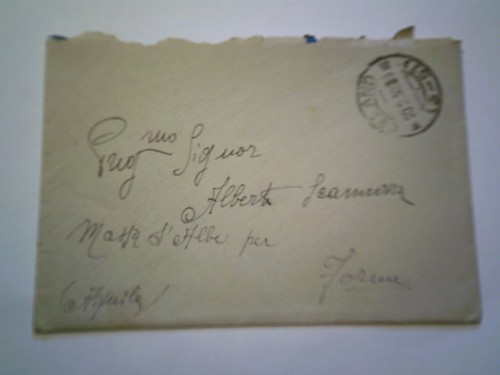 Preg mo Signor
Alberto
Massa d'Albe per
Forme
(Aquila)
CELANO